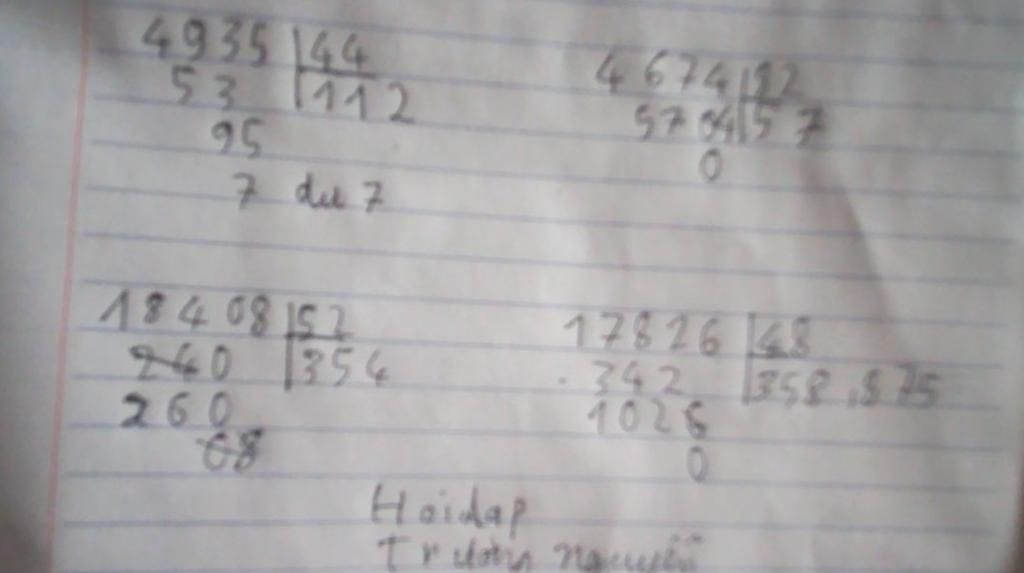 4935 44
53 112
95
7 dư 7
4674 82
5704 57
0
18408 52
240 354
260
68
17826 48
342 358,875
1026
0
Hoidap
Trường nguyễn